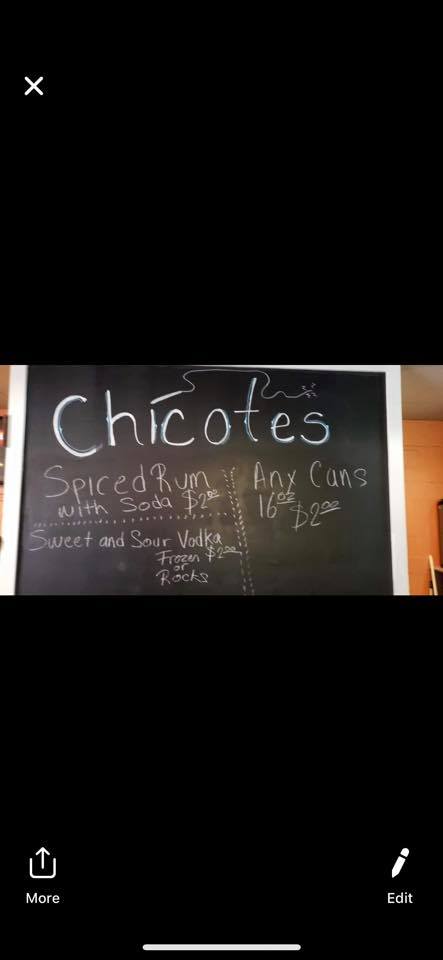 Chicotes
Spiced Rum
with Soda $2.00
Sweet and Sour Vodka
Frozen $2.00
or
Rocks
Any Cans
16oz $2.00
More
Edit